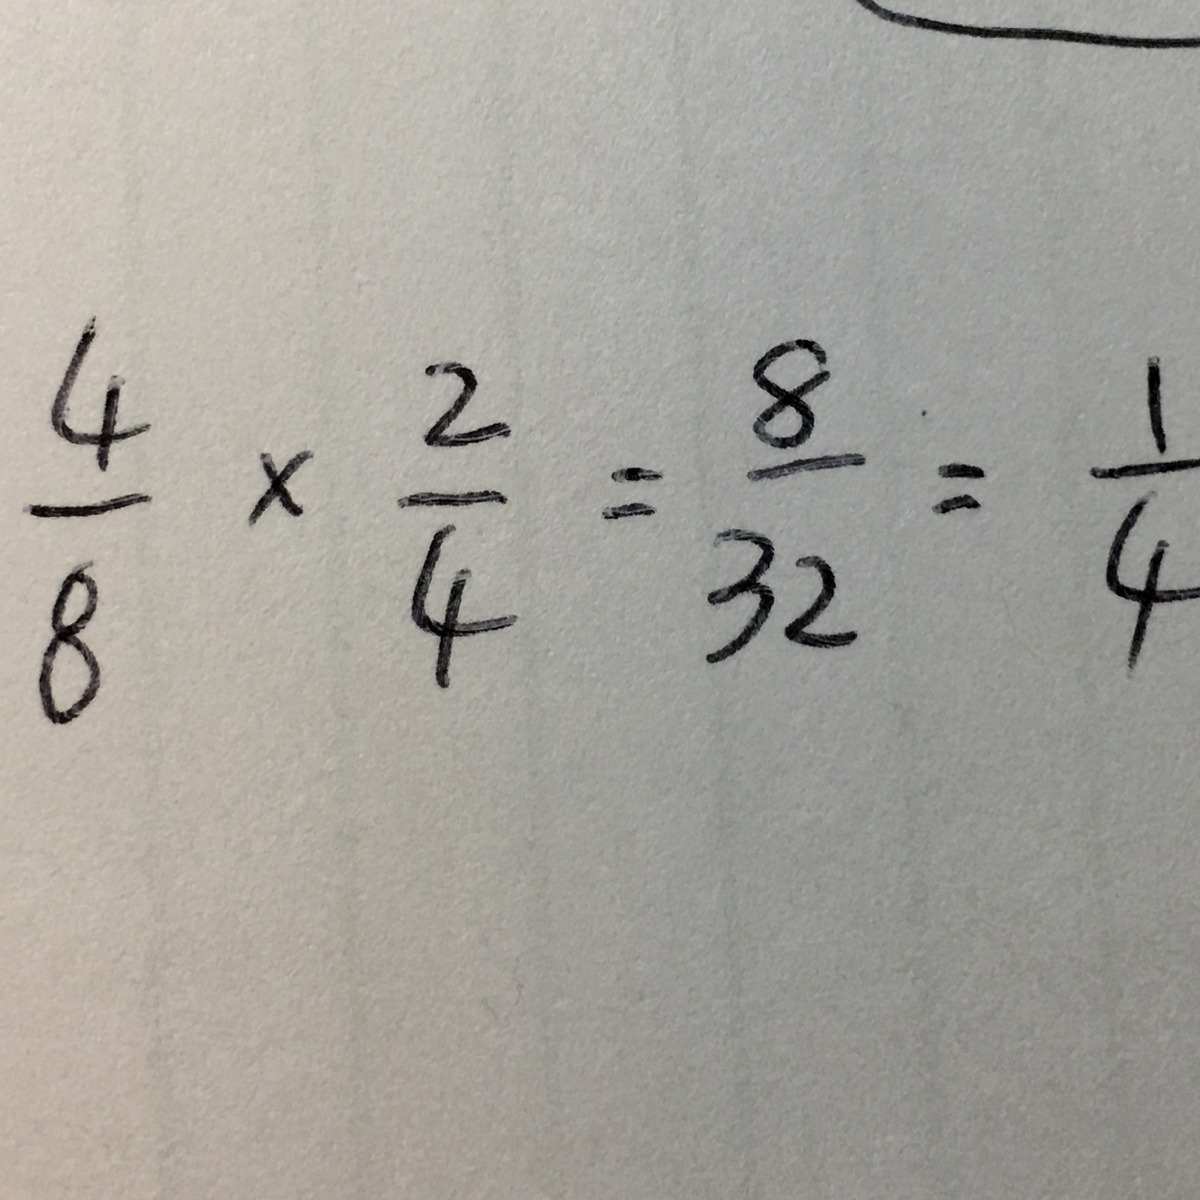 4/8 × 2/4 = 8/32 = 1/4